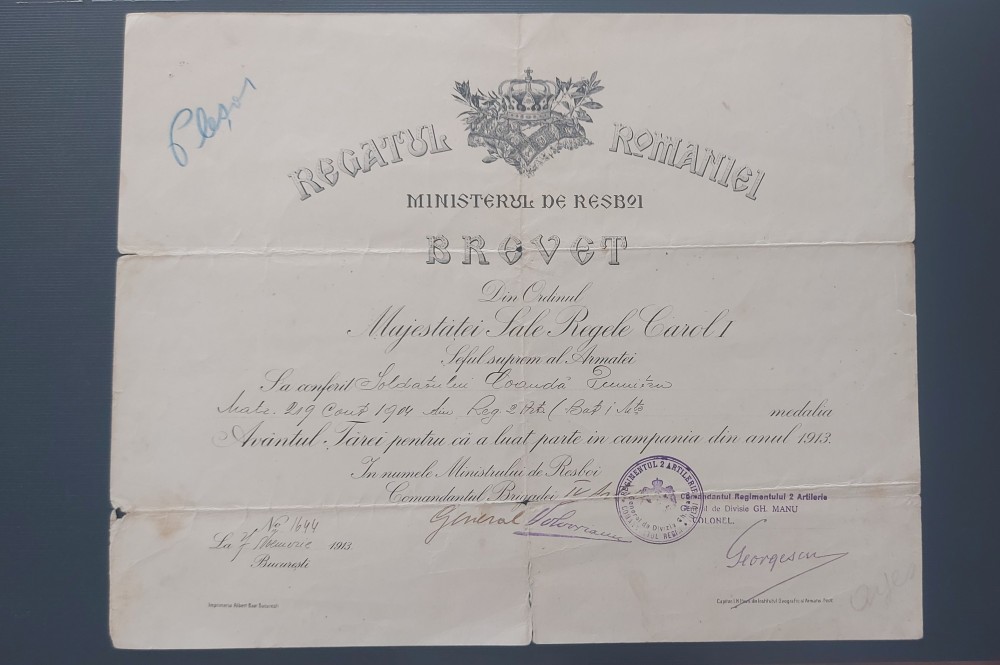 Pleșoi
REGATUL ROMANIEI
MINISTERUL DE RESBOI
BREVET
Din Ordinul
Majestăței Sale Regele Carol I
Șeful suprem al Armatei
S'a conferit Soldatului Coandă Dumitru
Matr. 219 Cont 1904 din Reg. 2 Art. medalia
Avântul Țărei pentru că a luat parte in campania din anul 1913.
In numele Ministrului de Resboi
Comandantul Brigadei IV Art
REGIMENTUL 2 ARTILERIE
Comandantul Regimentului 2 Artilerie
General de Divisie GH. MANU
COLONEL.
General
Georgescu
No 1644
La 1913.
București
Imprimeria Albert Baer Bucuresti